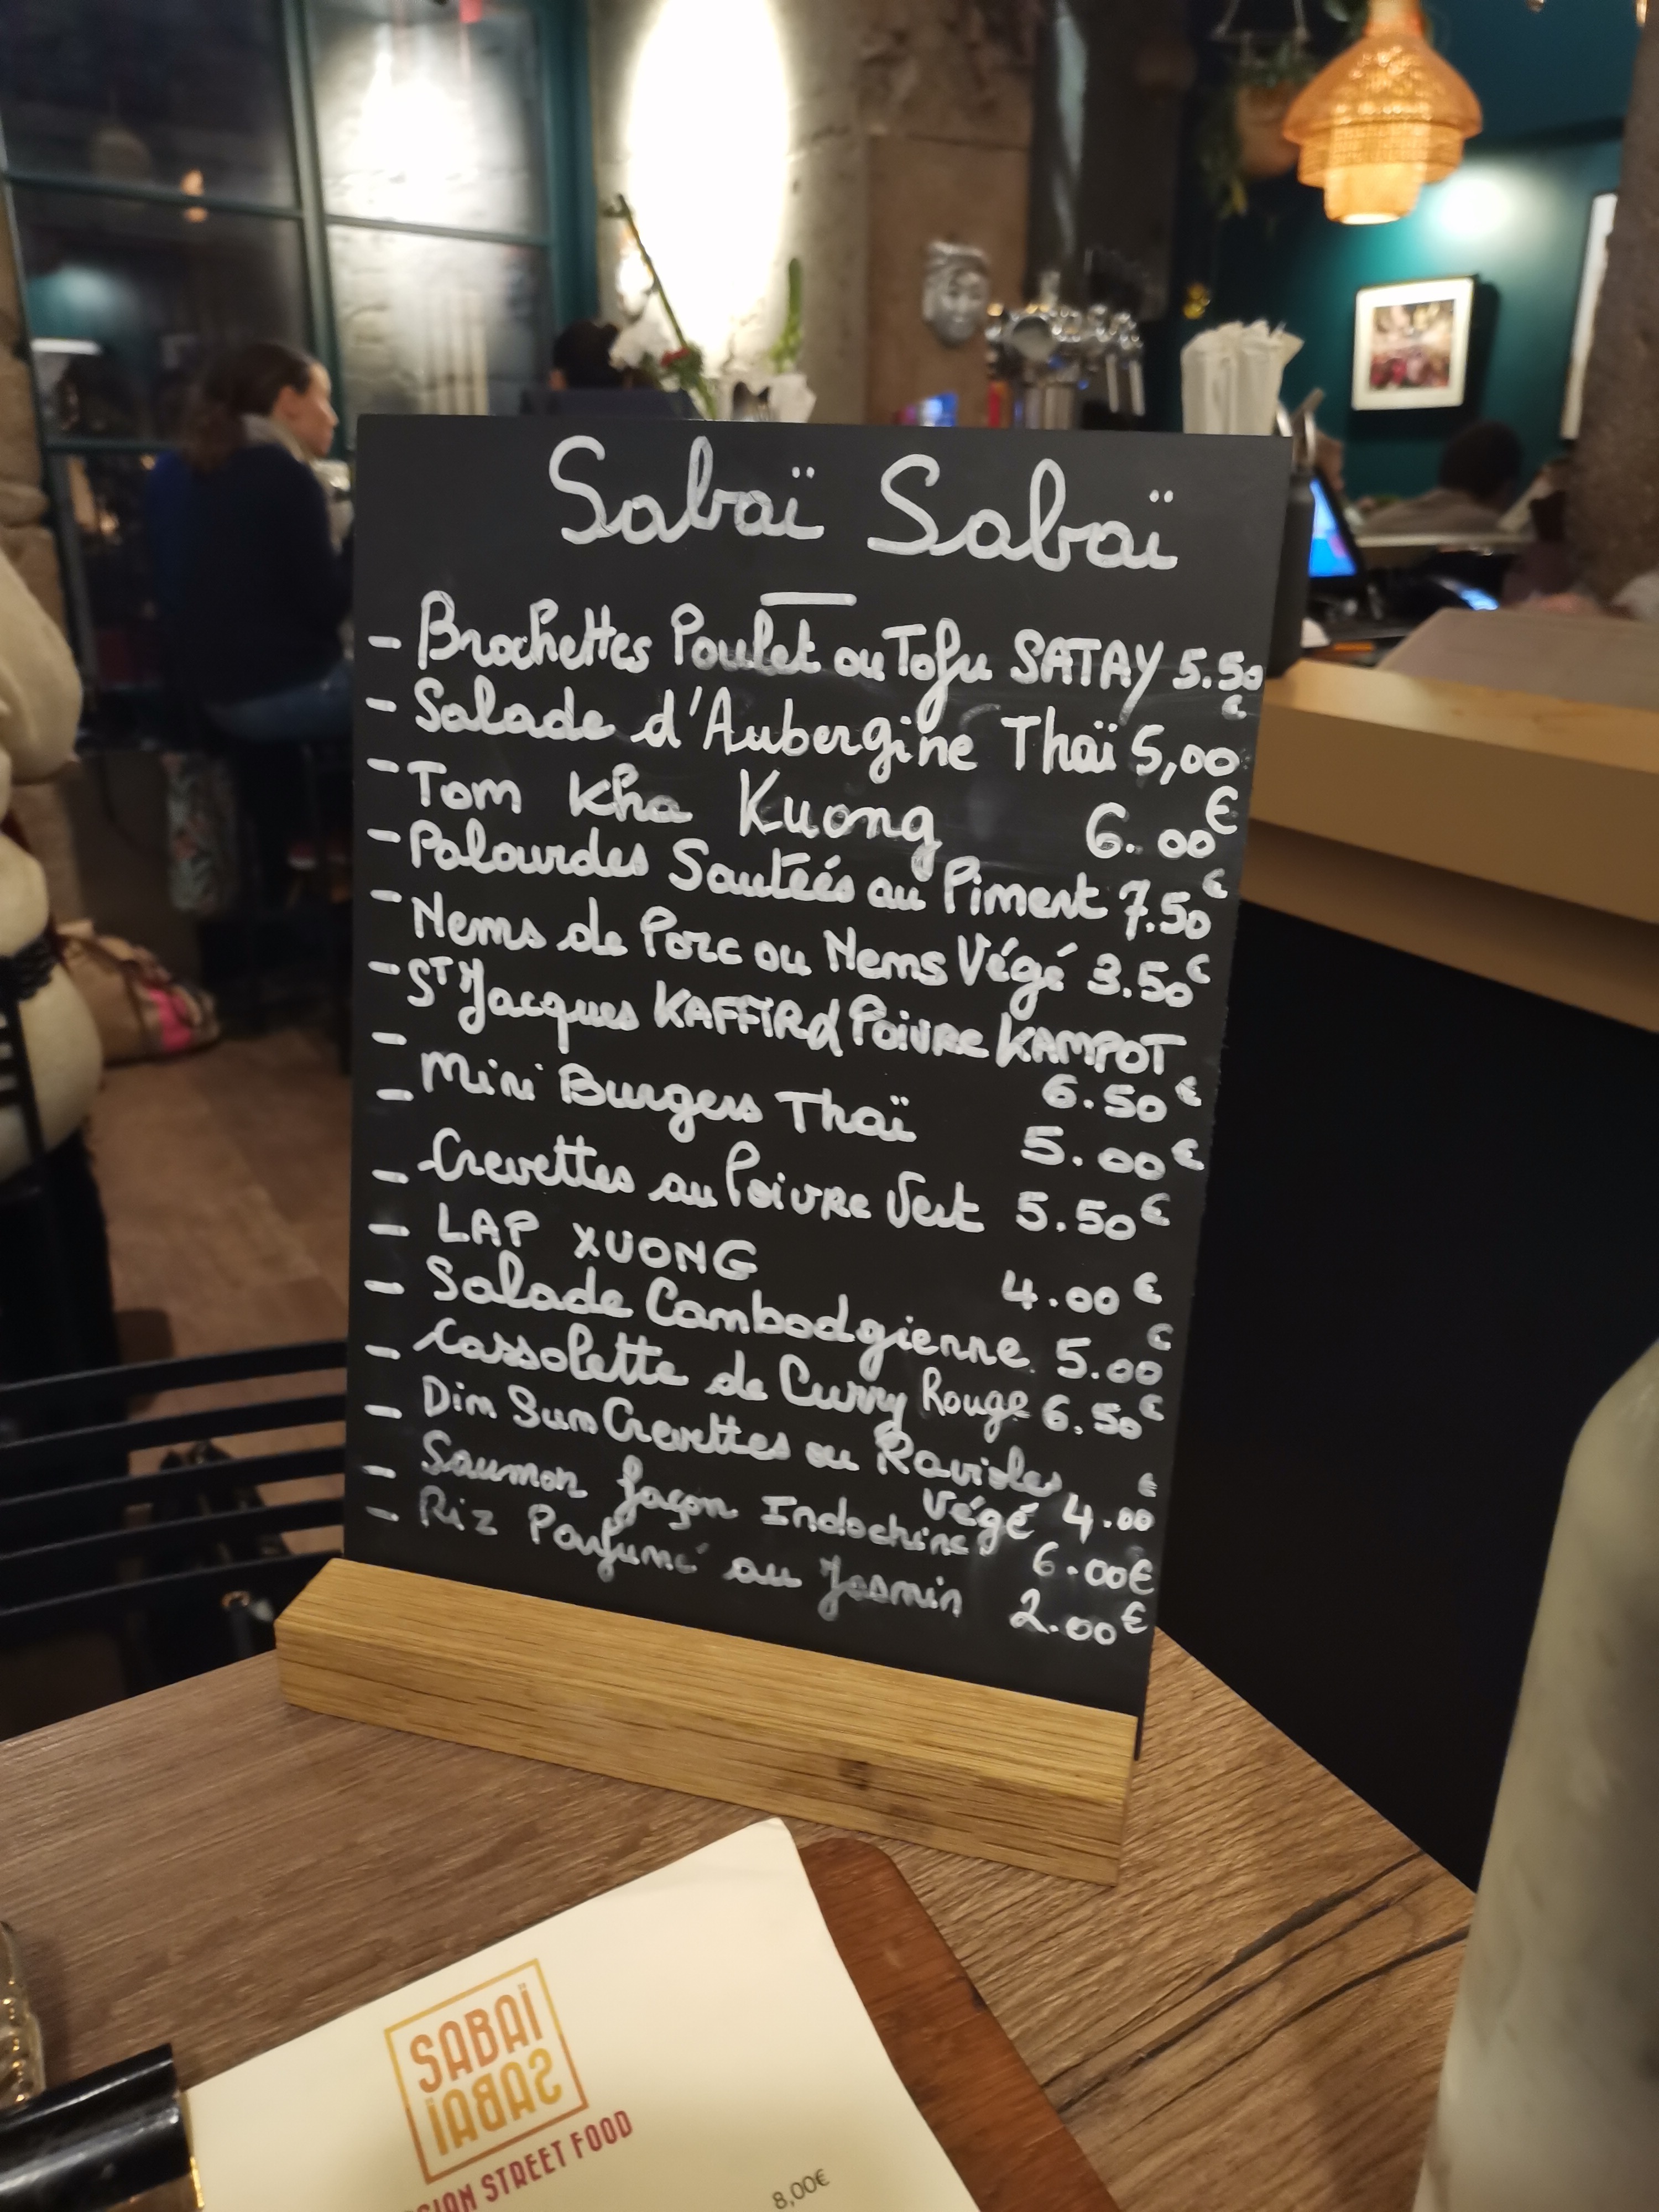 Sabaï Sabaï
- Brochettes Poulet ou Tofu SATAY 5.50 €
- Salade d'Aubergine Thaï 5,00 €
- Tom Kha Kuong 6.00 €
- Palourdes Sautéés au Piment 7.50 €
- Nems de Porc ou Nems Végé 3.50 €
- ST Jacques KAFFIR & Poivre KAMPOT
6.50 €
- Mini Burgers Thaï 5.00 €
- Crevettes au Poivre Vert 5.50 €
- LAP XUONG 4.00 €
- Salade Cambodgienne 5.00 €
- Cassolette de Curry Rouge 6.50 €
- Dim Sum Crevettes ou Ravioles
Végé 4.00 €
- Saumon façon Indochine 6.00 €
- Riz Parfumé au Jasmin 2.00 €
SABAÏ
SABAÏ
ASIAN STREET FOOD
8,00€